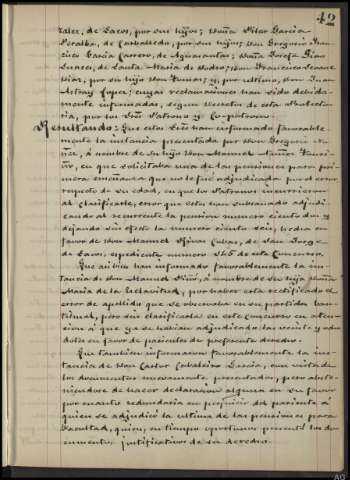 42
zalez, de Lares, por sus hijos; Doña Pilar García
Peralba, de Carballedo, por sus hijos; Don Gregorio Fran-
cisco García Carrero, de Aguasantas; Doña Josefa Dios
de Santa María de Don Francisco
Dios, por su hijo Don y, por ultimo, Don Juan
Astray Lopez; cuyas reclamaciones han sido debida-
mente informadas, segun decreto de esta Protecto-
ria, por los Sres Patronos y Co-patronos.
Resultando: Que estos Sres han informado favorable-
mente la instancia presentada por Don Gregorio
á nombre de su hijo Don Manuel
en que solicitaba una de las pensiones para pri-
mera enseñanza que no le fué adjudicada por el error
respecto de su edad, en que los Patronos incurrieron
al clasificarle, error que estos han subsanado adjudi-
cando al recurrente la pension numero ciento dos y
dejando sin efecto la numero ciento seis, hecha en
favor de Don Manuel de San Jorge
de Sacos, expediente numero 345 de este Concurso.
Que asi bien han informado favorablemente la ins-
tancia de Don Manuel á nombre de su hija Doña
María de la Natividad, por haber esta rectificado el
error de apellido que se observaba en su partida bau-
tismal, pero sin clasificarla en este Concurso en aten-
cion á que ya se habian adjudicado las veinte y una
dotes en favor de parientes de preferente derecho.
Que tambien informaron favorablemente la ins-
tancia de Don Castor Caballeiro García, con vista de
los documentos nuevamente presentados, pero abste-
niendose de hacer declaracion alguna en su favor
por cuanto redundaria en perjuicio del pariente á
quien se adjudicó la ultima de las pensiones para
Facultad, quien, en tiempo oportuno presentó los do-
cumentos justificativos de su derecho.